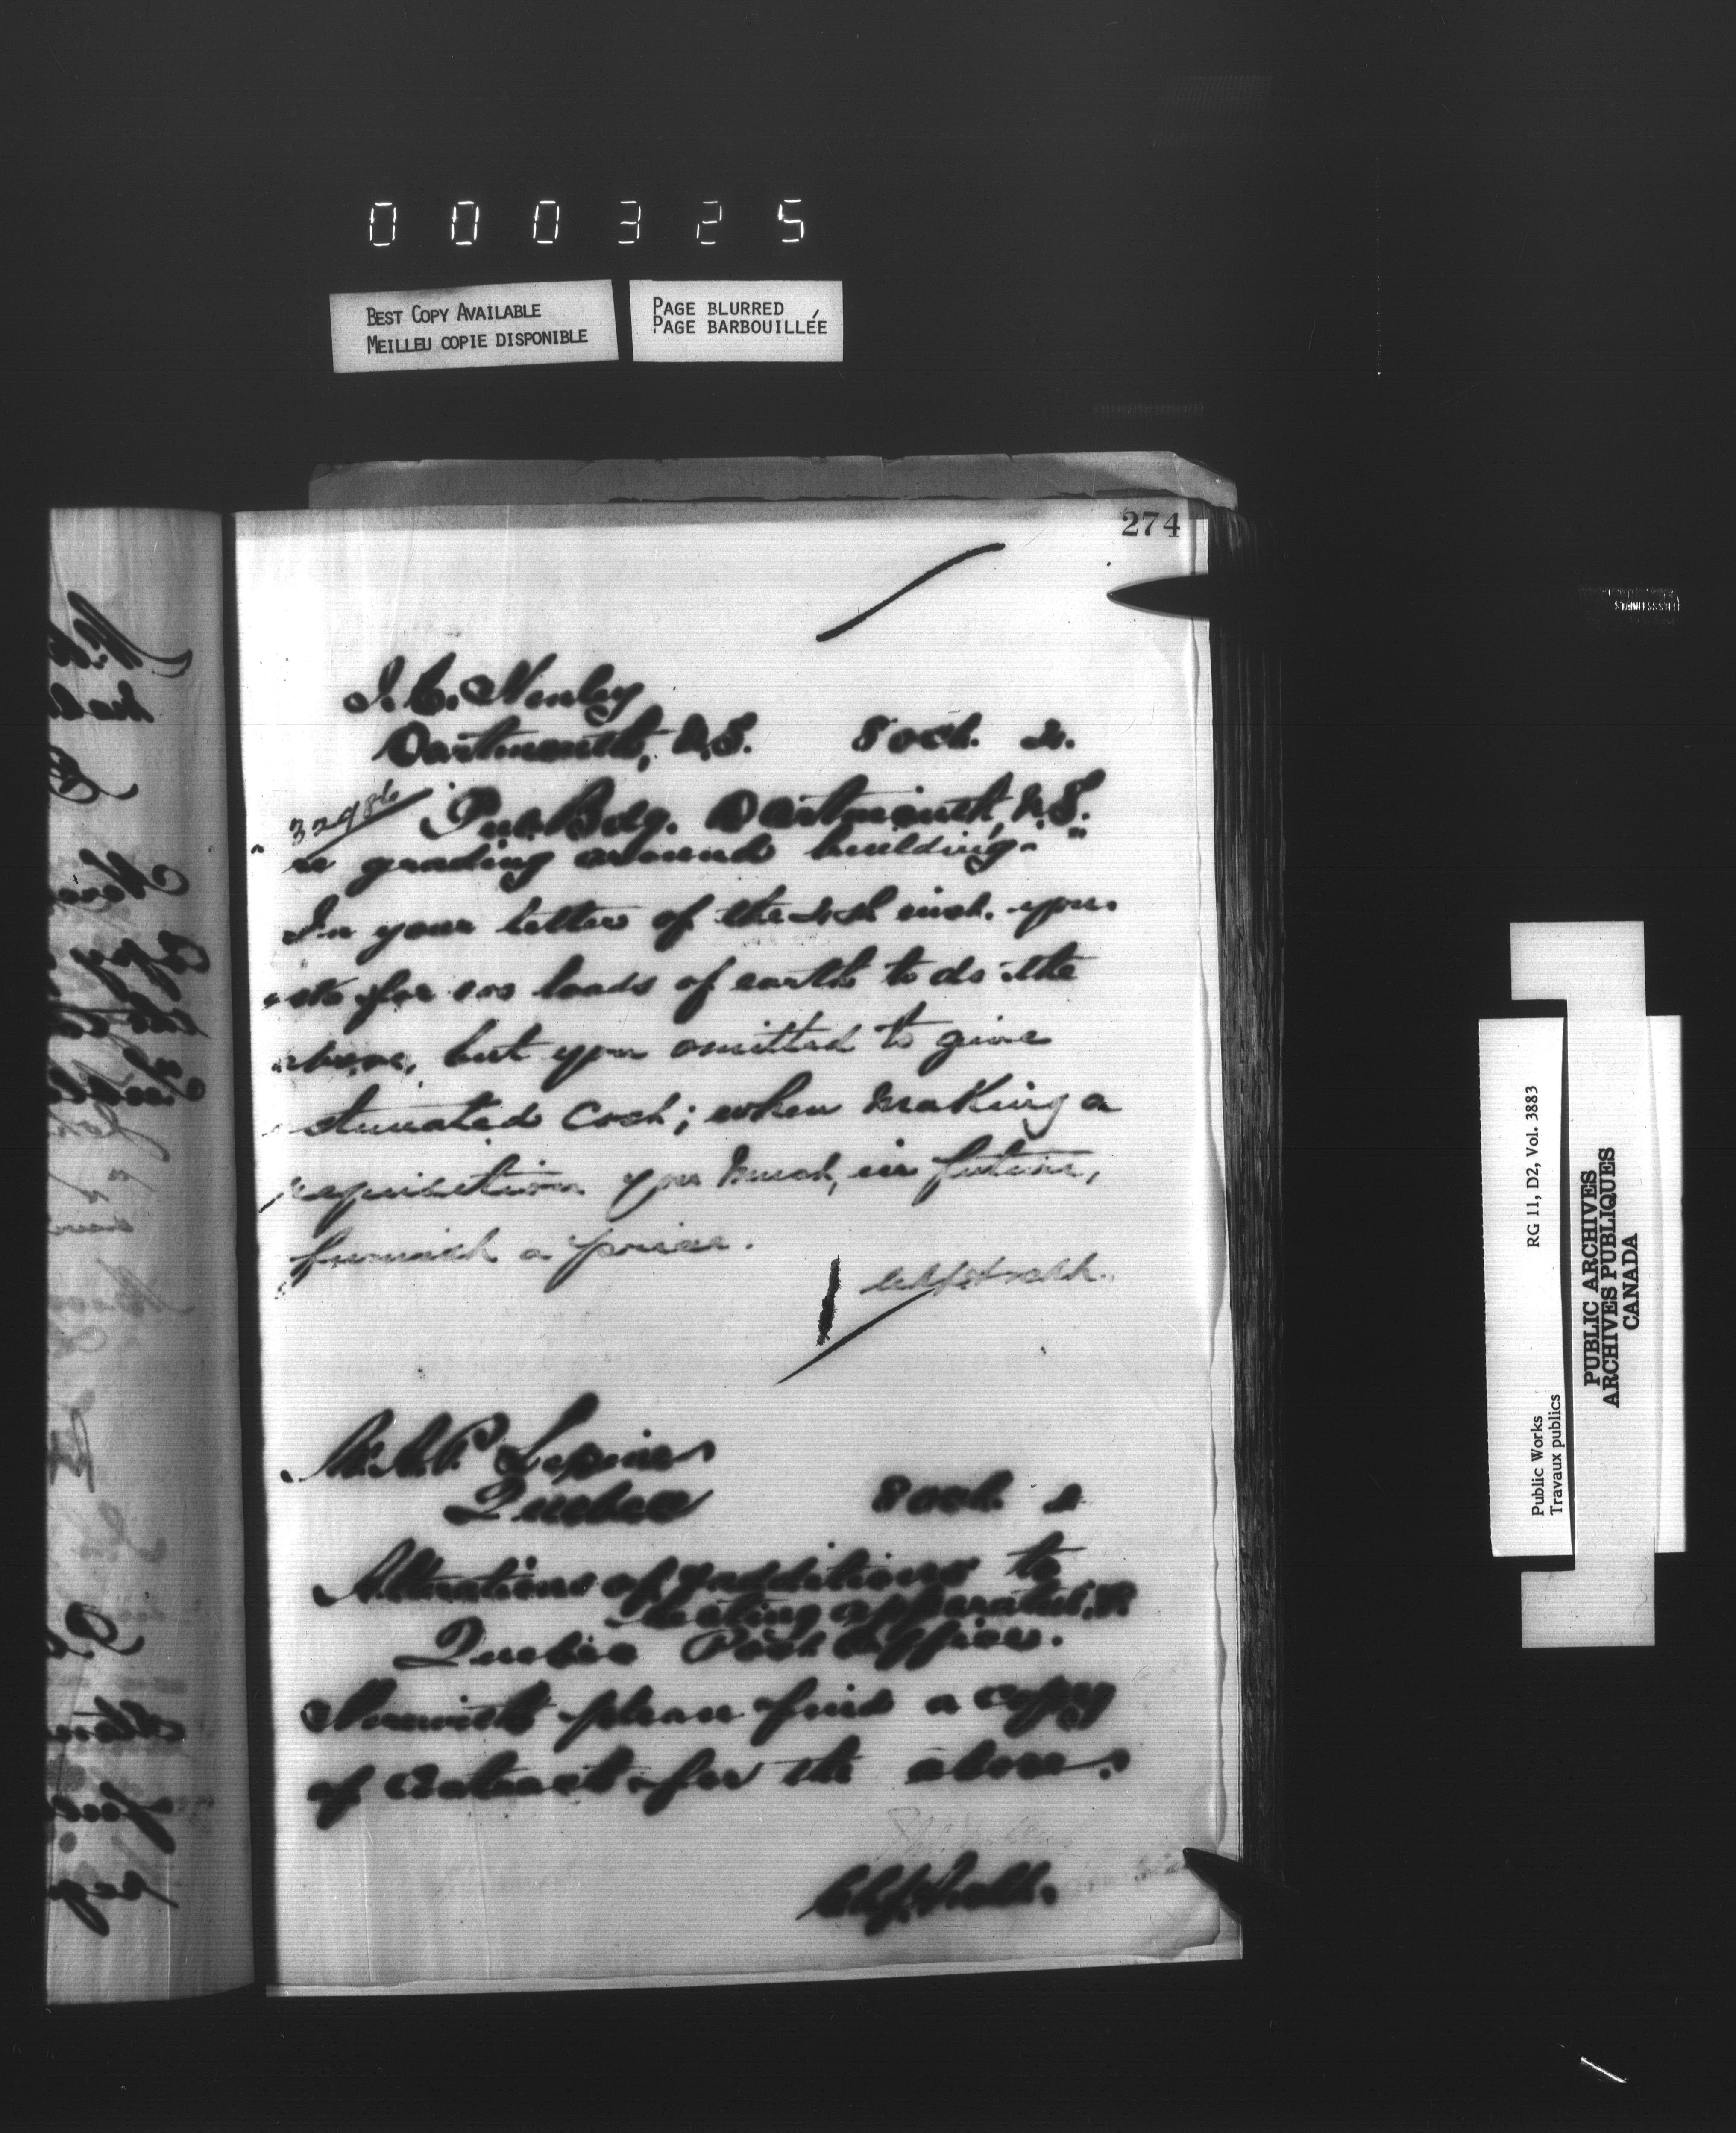 000325
BEST COPY AVAILABLE
MEILLEU COPIE DISPONIBLE
PAGE BLURRED
PAGE BARBOUILLÉE
274
Dartmouth, N.S. 8 Oct. 2.
32986
Pub. Bdg. Dartmouth, N.S.
"re grading around building."
In your letter of the inst. you
ask for 100 loads of earth to do the
above, but you omitted to give
estimated cost; when making a
requisition you must, in future,
furnish a price.
Lepine
Quebec 8 Oct. 2
Alterations of & additions to
heating apparatus,
Quebec Post Office.
Herewith please find a copy
of contract for the above.
STAINLESS STEEL
Public Works
Travaux publics
RG 11, D2, Vol. 3883
PUBLIC ARCHIVES
ARCHIVES PUBLIQUES
CANADA